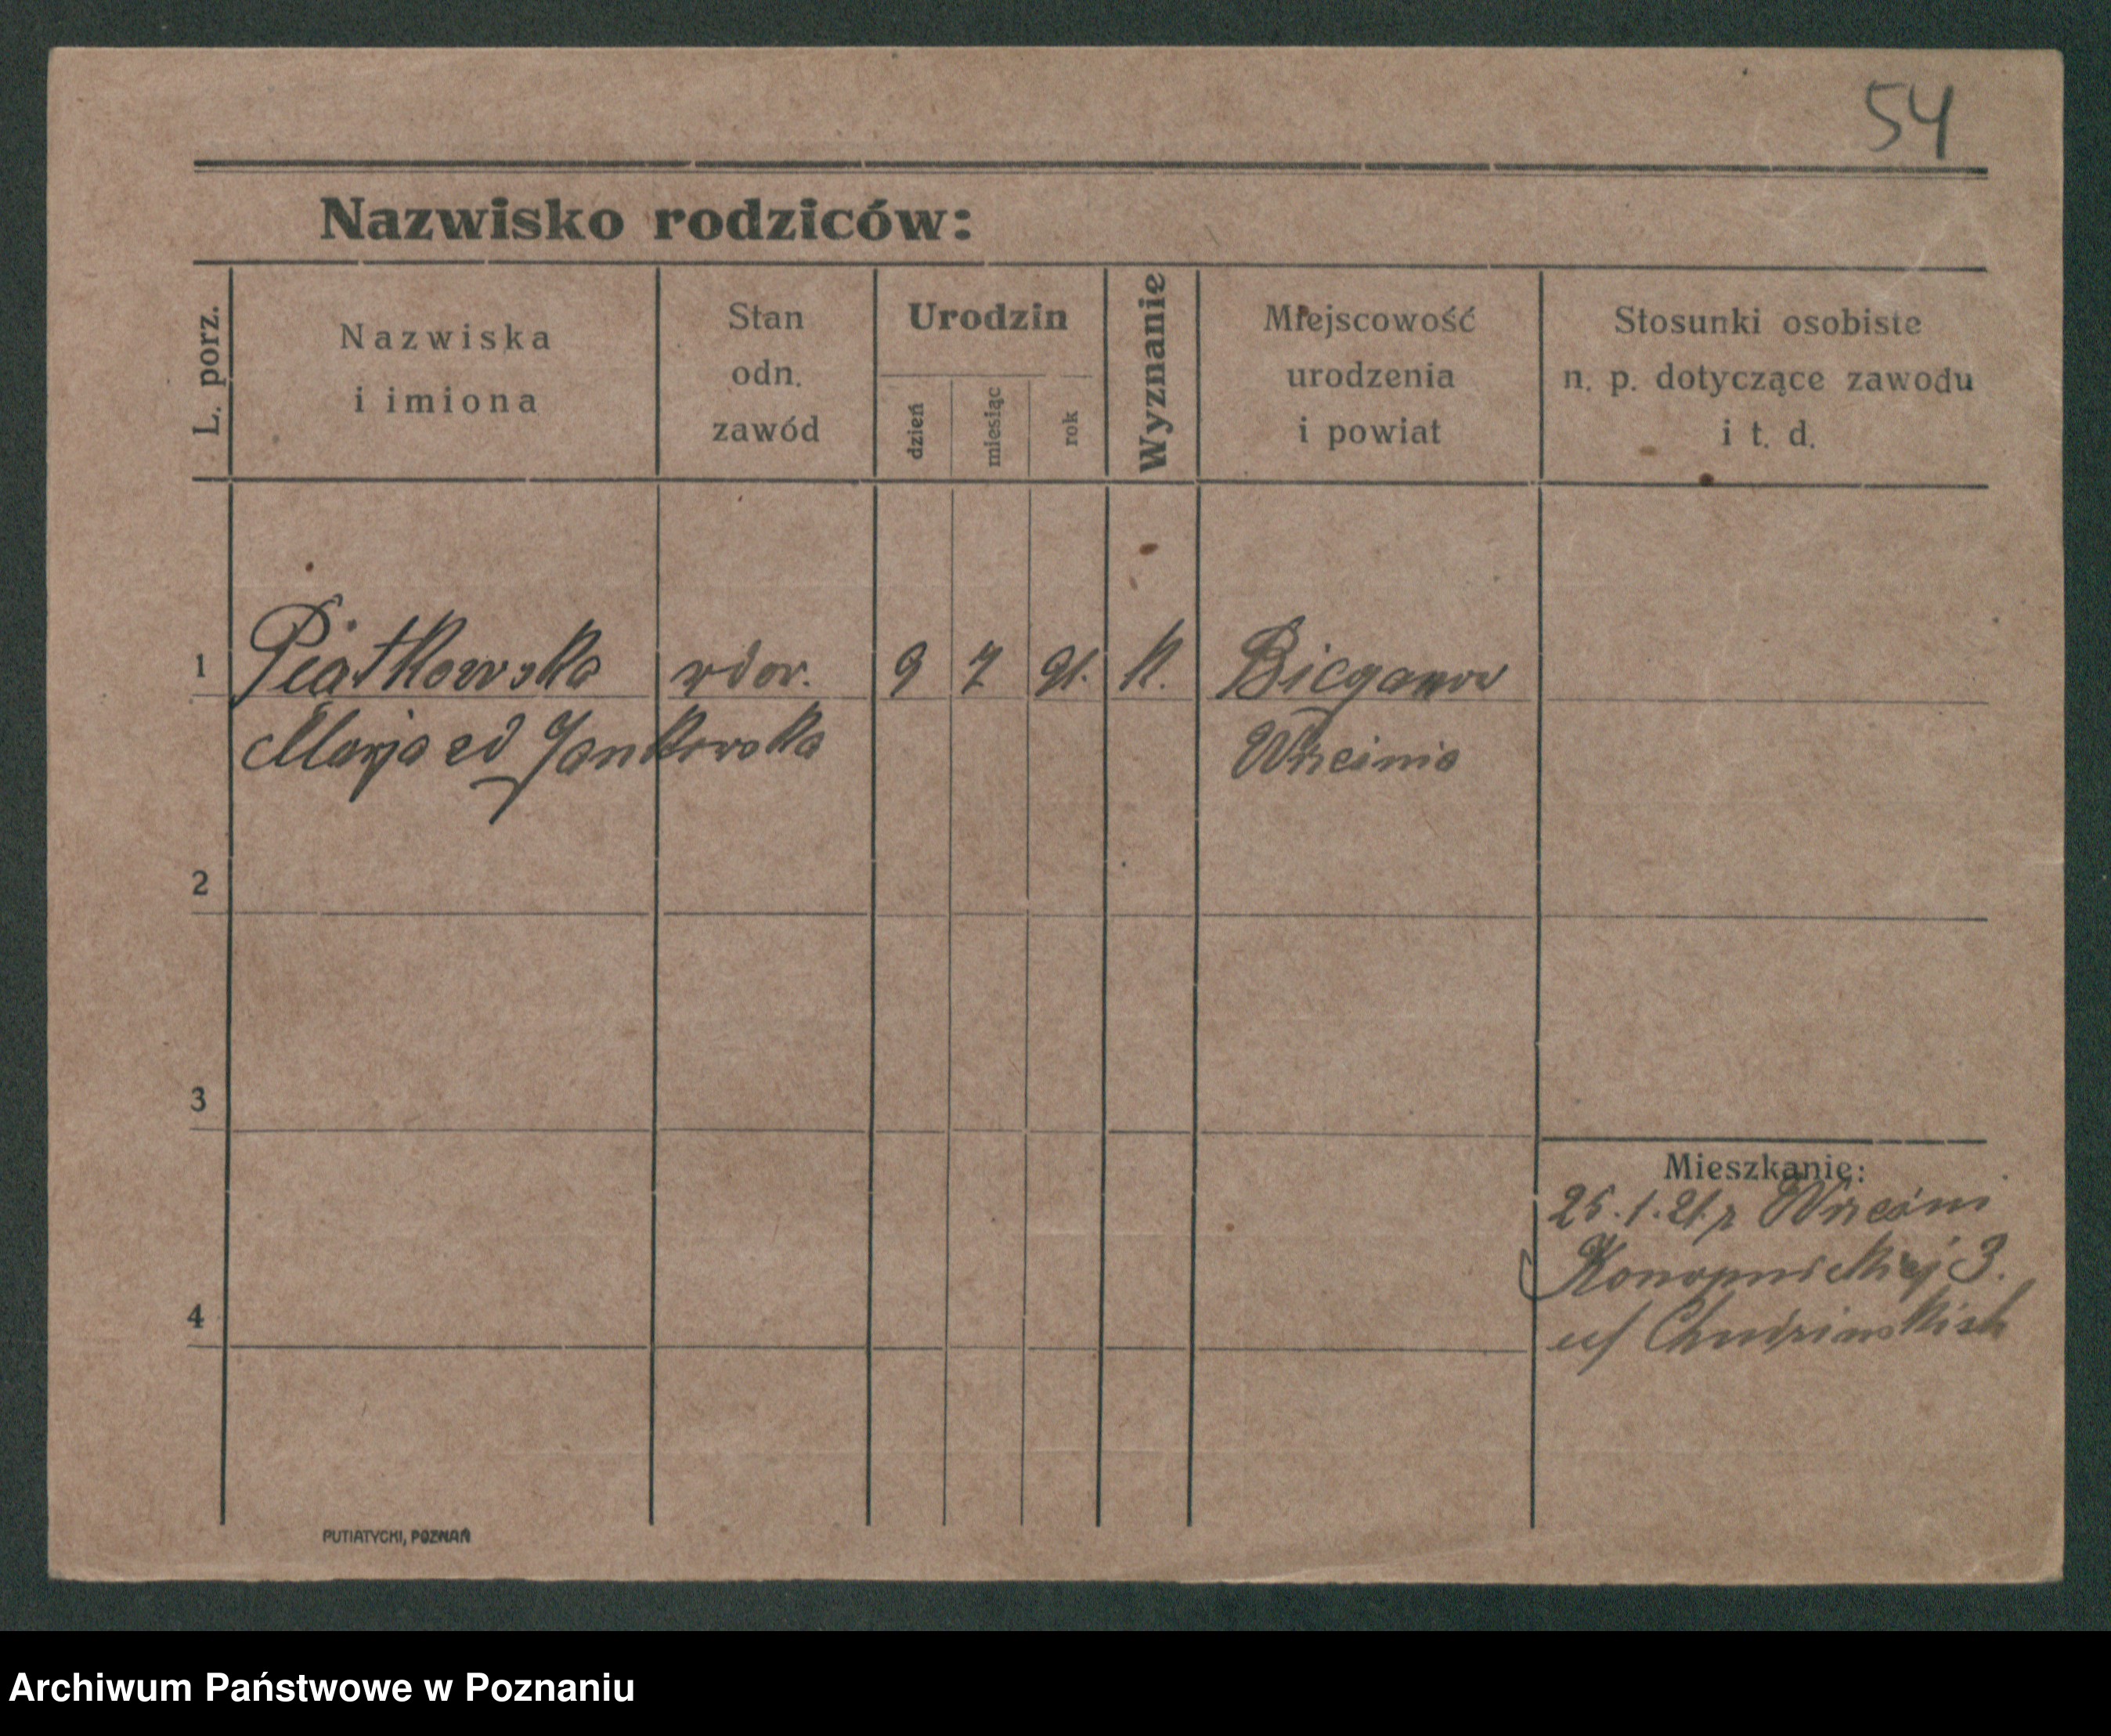 54
Nazwisko rodziców:
L. porz.
Nazwiska
i imiona
Stan
odn.
zawód
Urodzin
dzień
miesiąc
rok
Wyznanie
Miejscowość
urodzenia
i powiat
Stosunki osobiste
n. p. dotyczące zawodu
i t. d.
1 Piątkowska wdow. 9 7 91. K. Bieganow
Marja zd Jankowska Września
2
3
4
Mieszkanie:
25.1.21. z Wrześni
Konopnickiej 3.
u/ Chudzinskich
PUTIATYCKI, POZNAŃ
Archiwum Państwowe w Poznaniu